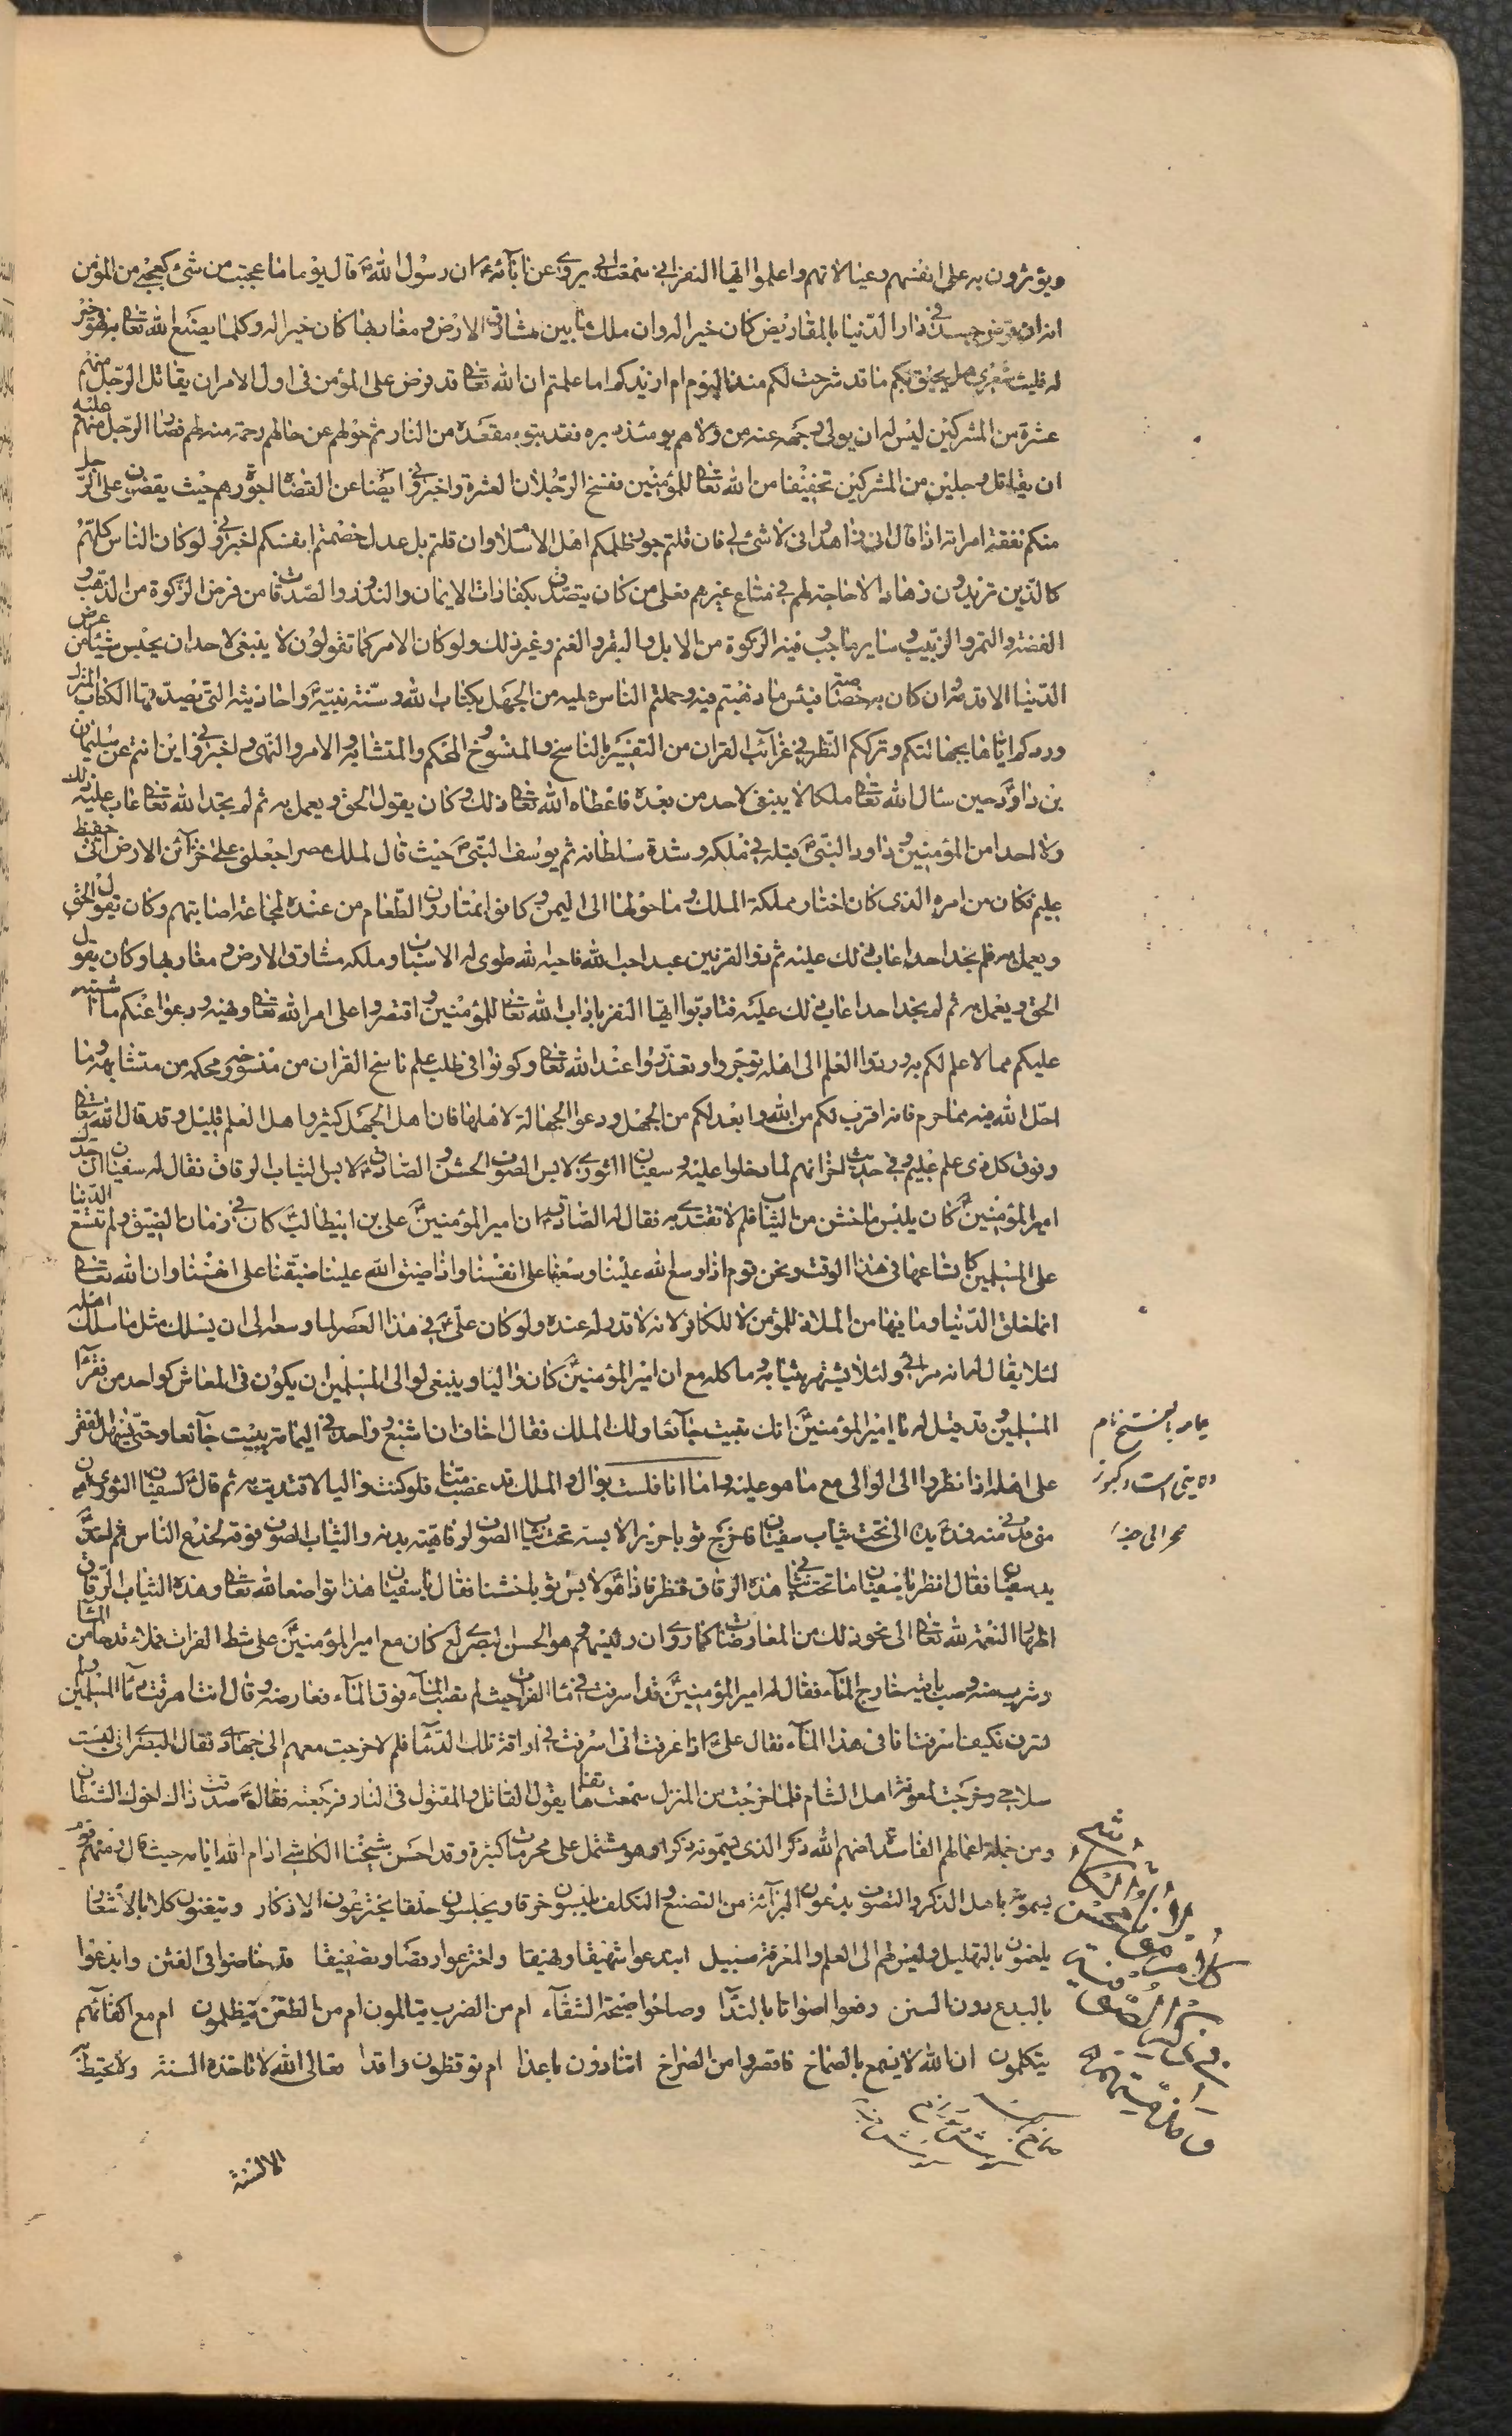 ويؤثرون به على انفسهم وعيالاتهم واعلموا ايها النفر اني سمعت ابي يروي عن آبائه ع ان رسول الله ص قال يوما ما عجبت من شئ كعجبي من المؤمن
انه ان قرض جسده في دار الدنيا بالمقاريض كان خيرا له وان ملك ما بين مشارق الارض و مغاربها كان خيرا له وكلما يصنع الله تعالى به فهو خير
له فليت شعري هل يحيق بكم ما قد شرحت لكم منذ اليوم ام ازيدكم اما علمتم ان الله تعالى قد فرض على المؤمن في اول الامر ان يقاتل الرجل منهم
عشرة من المشركين ليس له ان يولى وجهه عنه من ولاهم يومئذ دبره فقد تبوء مقعده من النار ثم حولهم عن حالهم رحمة منه لهم فصار الرجل منهم عليه
ان يقاتل رجلين من المشركين تخفيفا من الله تعالى للمؤمنين فنسخ الرجلان العشرة واخبروني ايضا عن القضاة الجورة هم حيث يقضون على الرجل
منكم نفقة امراته اذا قال اني زاهد واني لا شئ لي فان قلتم جور ظلمكم اهل الاسلام وان قلتم بل عدل خصمتم انفسكم اخبروني لو كان الناس كلهم
كالذين تريدون زهادا لا حاجة لهم في متاع غيرهم فعلى من كان يتصدق بكفارات الايمان والنذور والصدقات من فرض الزكوة من الذهب و
الفضة والتمر والزبيب و ساير ما وجب فيه الزكوة من الابل والبقر والغنم وغير ذلك ولو كان الامر كما تقولون لا ينبغي لاحد ان يحبس شيئا من عرض
الدنيا الا قدمه وان كان به خصاصة فبئس ما ذهبتم فيه وحملتم الناس عليه من الجهل بكتاب الله وسنة نبيه ص واحاديثه التي يصدقها الكتاب المنزل
وردكم اياها بجهالتكم وترككم النظر في غرائب القران من التفسير بالناسخ والمنسوخ والمحكم والمتشابه والامر والنهي واخبروني اين انتم عن سليمان
بن داود حين سال الله تعالى ملكا لا ينبغي لاحد من بعده فاعطاه الله تعالى ذلك و كان يقول الحق ويعمل به ثم لم يجد الله تعالى عاب عليه ذلك
ولا احدا من المؤمنين وداود النبي ص قبله في ملكه و شدة سلطانه ثم يوسف النبي ص حيث قال لملك مصر اجعلني على خزائن الارض اني حفيظ
عليم فكان من امره الذي كان اختار مملكة الملك وما حولها الى اليمن وكانوا يمتارون الطعام من عنده لمجاعة اصابتهم وكان يقول الحق
ويعمل به فلم نجد احدا عاب ذلك عليه ثم ذو القرنين عبد احب الله فاحبه الله طوى له الاسباب و ملكه مشارق الارض و مغاربها وكان يقول
الحق ويعمل به ثم لم نجد احدا عاب ذلك عليه فتادبوا ايها النفر باداب الله تعالى للمؤمنين واقتصروا على امر الله تعالى ونهيه ودعوا عنكم ما اشتبه
عليكم مما لا علم لكم به وردوا العلم الى اهله توجروا و تعذروا عند الله تعالى وكونوا في طلب علم ناسخ القران من منسوخه و محكمه من متشابهه وما
احل الله فيه مما حرم فانه اقرب لكم من الله وابعد لكم من الجهل ودعوا الجهالة لاهلها فان اهل الجهل كثير و اهل العلم قليل وقد قال الله تعالى
وفوق كل ذي علم عليم وفي حديث اخر انهم لما دخلوا عليه و سفيان الثوري لابس الصوف الخشن والصادق ع لابس الثياب الرقاق فقال له سفيان ان جدك
امير المؤمنين كان يلبس ما خشن من الثياب فلم لا تقتدي به فقال له الصادق ع ان امير المؤمنين علي بن ابيطالب كان في زمان الضيق ولم تتسع الدنيا
على المسلمين كاتساعها في هذا الوقت ونحن قوم اذا وسع الله علينا وسعنا على انفسنا واذا ضيق الله علينا ضيقنا على انفسنا وان الله تعالى
انما خلق الدنيا وما فيها من الملاذ للمؤمن لا للكافر لانه لا قدر له عنده ولو كان علي ع في هذا العصر لما وسعه الى ان يسلك مثل ما سلك اهله
لئلا يقال له انه مرائي ولئلا يشتهر بثيابه و ماكله مع ان امير المؤمنين كان واليا و ينبغي لوالي المسلمين ان يكون في المعاش كواحد من فقراء
المسلمين وقد قيل له يا امير المؤمنين انك تبيت جائعا ولك الملك فقال اخاف ان اشبع وواحد في اليمامة يبيت جائعا وحتى يهون الفقر
على اهله اذا نظروا الى الوالي مع ما هو عليه واما انا فلست بوال والملك قد غصب منا فلو كنت واليا لاقتديت به ثم قال لسفيان الثوري ادن
مني فدنى منه فمد يده الى تحت ثياب سفيان فاخرج ثوبا حريرا لابسه تحت ثياب الصوف لرفاهية بدنه والثياب الصوف فوقه لخدع الناس ثم اخذ
بيد سفيان فقال انظر يا سفيان ما تحت ثيابي هذه الرقاق فنظر فاذا هو لابس ثوبا خشنا فقال يا سفيان هذا تواضعا لله تعالى وهذه الثياب الرقاق
اظهارا لنعمة الله تعالى الى نحو ذلك من المعارضات كما روى ان رئيسهم وهو الحسن البصري كان مع امير المؤمنين على شط الفرات فملاء قدحا من الماء
وشرب منه وصب باقيه خارج الماء فقال له امير المؤمنين قد اسرفت في ماء الفرات حيث لم تصب الماء فوق الماء فعارضه وقال انت اهرقت دماء المسلمين ولم
تسرف فكيف اسرفت انا في هذا الماء فقال علي ع اذا عرفت اني اسرفت في اراقة تلك الدماء فلم لا خرجت معهم الى جهادي فقال البصري اني لبست
سلاحي وخرجت لمعونة اهل الشام فلما خرجت من المنزل سمعت هاتفا يقول القاتل والمقتول في النار فرجعت فقال ع صدقت ذاك اخوك الشيطان
ومن جملة اعمالهم الفاسدة اضلهم الله ذكر الذي يسمونه ذكرا وهو مشتمل على محرمات كثيرة وقد احسن شيخنا الكاشي ادام الله ايامه حيث قال ومنهم قوم
يسمون باهل الذكر والتصوف يدعون البرآئة من التصنع والتكلف يلبسون خرقا ويجلسون حلقا يخترعون الاذكار ويتغنون بالاشعار
يعلنون بالتهليل وليس لهم الى العلم والمعرفة سبيل ابتدعوا شهيقا ونهيقا واخترعوا رقصا وتصفيقا قد خاضوا في الفتن واخذوا
بالبدع دون السنن رفعوا اصواتا بالندا وصاحوا صيحة الشقاء ام من الضرب يتالمون ام من الطعن يتظلمون ام مع اكفائهم
يتكلمون ان الله لا يسمع بالصماخ فاقصروا من الصراخ اتنادون باعدا ام توقظون راقدا تعالى الله لا تاخذه السنة ولا تحيط به
الالسنة